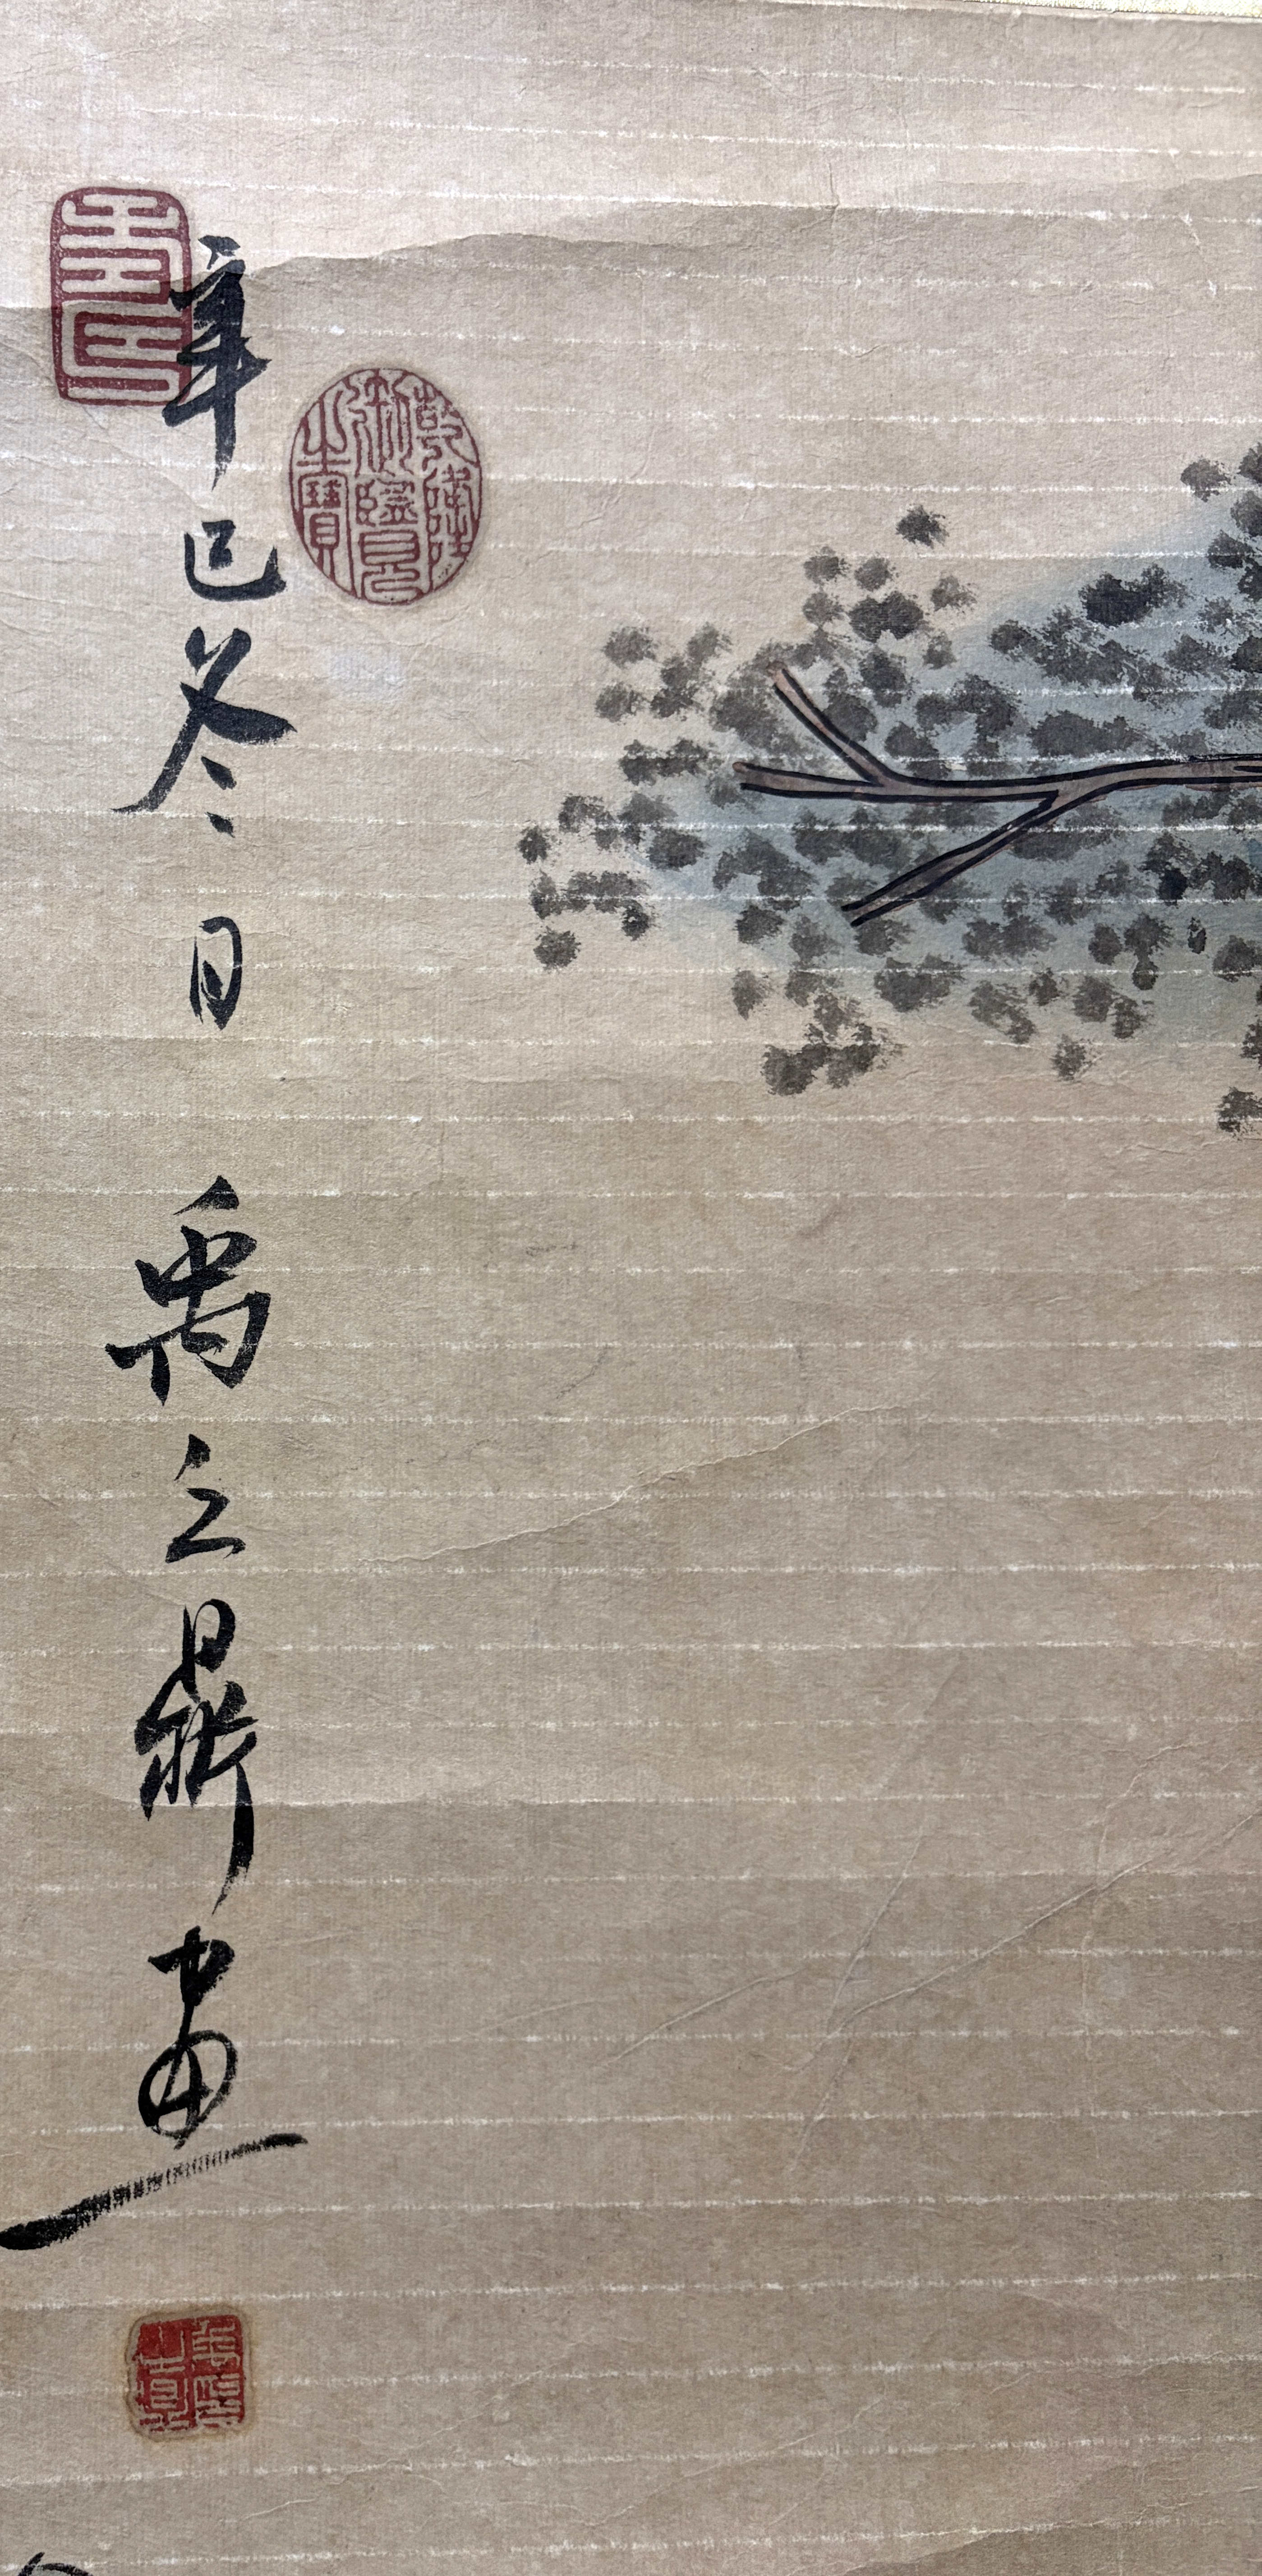 辛巳冬日 禹之鼎画
乾隆
御覽
之寶